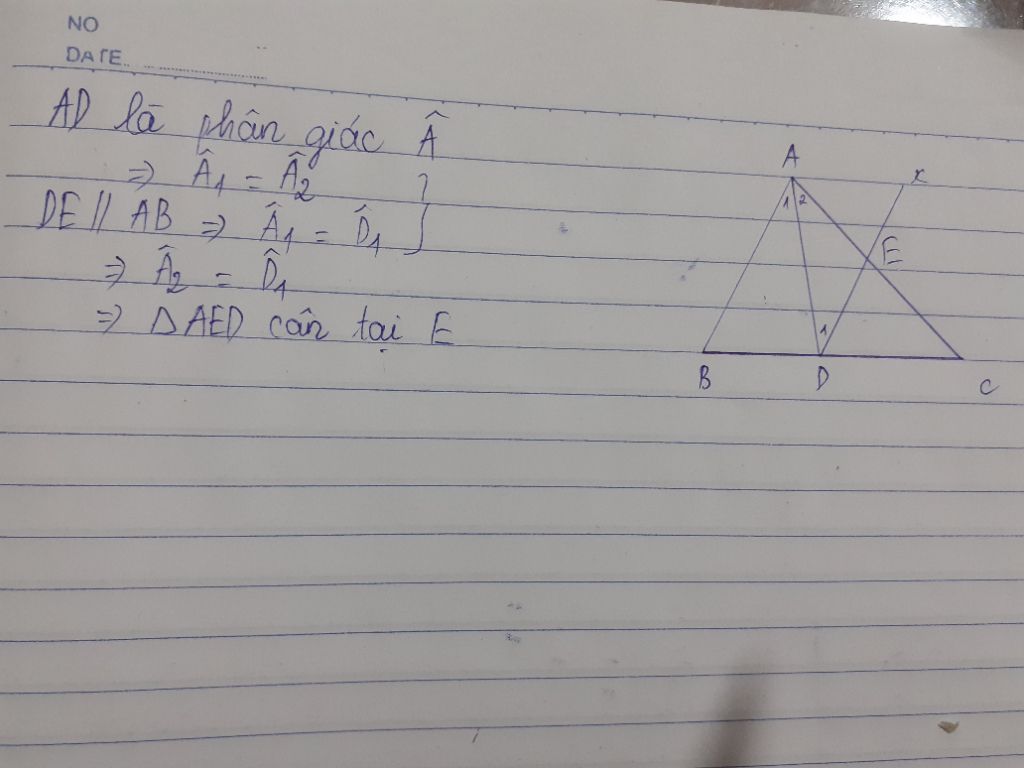 NO
DATE
AD là phân giác Â
=> Â1 = Â2
DE // AB => Â1 = D̂1
=> Â2 = D̂1
=> ΔAED cân tại E
A
x
1 2
E
1
B D C